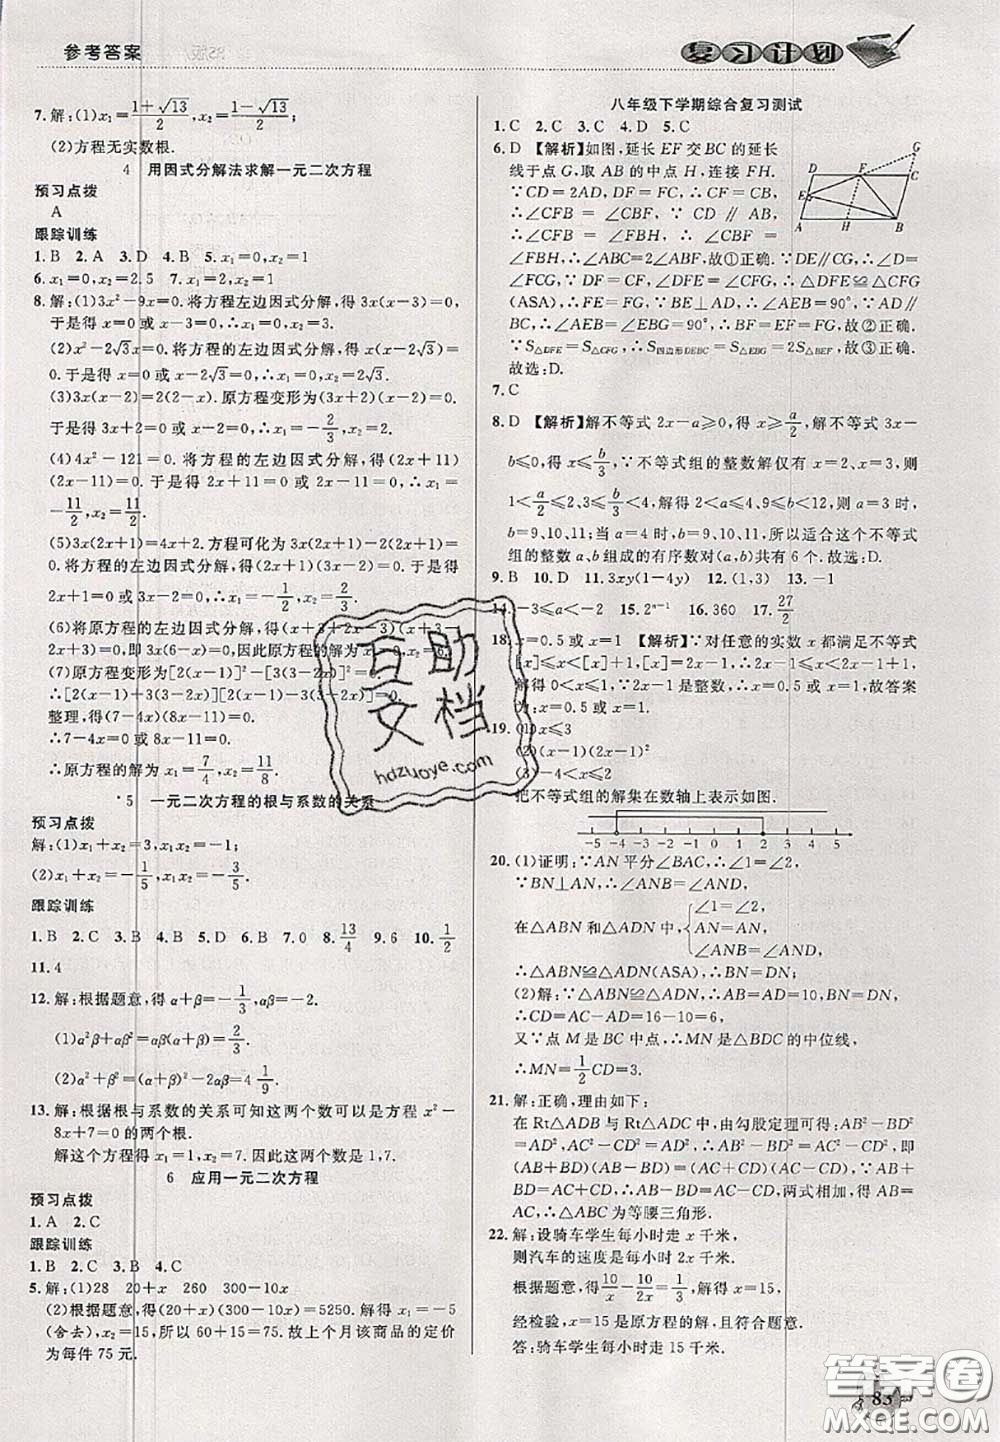 参考答案
复习计划
7.解:(1)x₁=(1+√13)/2,x₂=(1-√13)/2;
(2)方程无实数根.
4 用因式分解法求解一元二次方程
预习点拨
A
跟踪训练
1.B 2.A 3.D 4.B 5.x₁=0,x₂=1
6.x₁=0,x₂=2.5 7.x₁=2,x₂=1
8.解:(1)3x²-9x=0.将方程左边因式分解,得 3x(x-3)=0,
于是得 x=0 或 x-3=0,∴x₁=0,x₂=3.
(2)x²-2√3x=0.将方程的左边因式分解,得 x(x-2√3)
=0.于是得 x=0 或 x-2√3=0,∴x₁=0,x₂=2√3.
(3)3x(x-2)=2(2-x).原方程变形为(3x+2)(x-2)=
0.于是得 3x+2=0 或 x-2=0,∴x₁=-2/3,x₂=2.
(4)4x²-121=0.将方程的左边因式分解,得(2x+11)
(2x-11)=0.于是得 2x+11=0 或 2x-11=0,∴x₁=
-11/2,x₂=11/2.
(5)3x(2x+1)=4x+2.方程可化为 3x(2x+1)-2(2x+
1)=0.将方程的左边因式分解,得(2x+1)(3x-2)=0.于是得
2x+1=0 或 3x-2=0,∴x₁=-1/2,x₂=2/3.
(6)将原方程的左边因式分解,得(x+2+2x-3)(x+3-
2x+3)=0,即 3x(6-x)=0,因此原方程的解为 x₁=0,x₂=6.
(7)原方程变形为[2(x-1)]²-[3(3-2x)]²=0
∴[2(x-1)+3(3-2x)][2(x-1)-3(3-2x)]=0.
整理,得(7-4x)(8x-11)=0.
∴7-4x=0 或 8x-11=0.
∴原方程的解为 x₁=7/4,x₂=11/8.
5 一元二次方程的根与系数的关系
预习点拨
解:(1)x₁+x₂=3,x₁x₂=-1;
(2)x₁+x₂=-1/5,x₁x₂=-1/5.
跟踪训练
1.B 2.C 3.A 4.B 5.D 6.B 7.0 8.13/4 9.6 10.1/2
11.4
12.解:根据题意,得 α+β=-1/3,αβ=-2.
(1)α²β+αβ²=αβ(α+β)=2/3.
(2)α²+β²=(α+β)²-2αβ=4 1/9.
13.解:根据根与系数的关系可知这两个数可以是方程 x²-
8x+7=0 的两个根.
解这个方程得 x₁=1,x₂=7.因此这两个数为 1,7.
6 应用一元二次方程
预习点拨
1.A 2.C
跟踪训练
1.B 2.C 3.B 4.C
5.解:(1)28 20+x 260 300-10x
(2)根据题意,得(20+x)(300-10x)=5250.解得 x₁=-5
(舍去),x₂=15,所以 60+15=75.故上个月该商品的定价
为每件 75 元.
八年级下学期综合复习测试
1.C 2.C 3.C 4.D 5.C
6.D 【解析】如图,延长 EF 交 BC 的延长
线于点 G,取 AB 的中点 H,连接 FH.
∵CD=2AD,DF=FC,∴CF=CB,
∴∠CFB=∠CBF,∵CD∥AB,
∴∠CFB=∠FBH,∴∠CBF=
∠FBH,∴∠ABC=2∠ABF,故①正确.∵DE∥CG,∴∠D=
∠FCG,∵DF=FC,∠DFE=∠CFG,∴△DFE≌△CFG
(ASA),∴FE=FG,∵BE⊥AD,∴∠AEB=90°,∵AD∥
BC,∴∠AEB=∠EBG=90°,∴BF=EF=FG,故②正确.
∵S△DFE=S△CFG,∴S四边形DEBC=S△EBG=2S△BEF,故③正确.
故选:D.
D F C G E A H B
7.C
8.D 【解析】解不等式 2x-a≥0,得 x≥a/2,解不等式 3x-
b≤0,得 x≤b/3,∵不等式组的整数解仅有 x=2、x=3,则
1<a/2≤2、3≤b/3<4,解得 2<a≤4、9≤b<12,则 a=3 时,
b=9、10、11;当 a=4 时,b=9、10、11;所以适合这个不等式
组的整数 a、b 组成的有序数对(a,b)共有 6 个.故选:D.
9.B 10.D 11.3xy(1-4y) 12.(1,3) 13.-1
14.-3≤a<-2 15.2ⁿ⁻¹ 16.360 17.27/2
18.x=0.5 或 x=1 【解析】∵对任意的实数 x 都满足不等式
[x]≤x<[x]+1,[x]=2x-1,∴2x-1≤x<2x-1+1,
解得 0<x≤1,∵2x-1 是整数,∴x=0.5 或 x=1,故答案
为:x=0.5 或 x=1.
19.(1)x≤3
(2)(x-1)(2x-1)²
(3)-4<x≤2
把不等式组的解集在数轴上表示如图.
-5 -4 -3 -2 -1 0 1 2 3 4 5
20.(1)证明:∵AN 平分∠BAC,∴∠1=∠2.
∵BN⊥AN,∴∠ANB=∠AND.
在△ABN 和△ADN 中,{∠1=∠2, AN=AN, ∠ANB=∠AND,
∴△ABN≌△ADN(ASA),∴BN=DN.
(2)解:∵△ABN≌△ADN,∴AB=AD=10,BN=DN,
∴CD=AC-AD=16-10=6,
又∵点 M 是 BC 中点,∴MN 是△BDC 的中位线,
∴MN=1/2CD=3.
21.解:正确,理由如下:
在 Rt△ADB 与 Rt△ADC 中,由勾股定理可得:AB²-BD²
=AD²,AC²-CD²=AD²,∴AB²-BD²=AC²-CD²,即
(AB+BD)(AB-BD)=(AC+CD)(AC-CD),∵AB+BD
=AC+CD,∴AB-BD=AC-CD,两式相加,得
AB=AC,∴△ABC 为等腰三角形.
22.解:设骑车学生每小时走 x 千米,
则汽车的速度是每小时 2x 千米.
根据题意,得10/x-10/2x=1/3,解得 x=15,
经检验,x=15 是原方程的解且符合题意.
答:骑车学生每小时走 15 千米.
互助文档
hdzuoye.com
答案圈
MXQE.COM
85